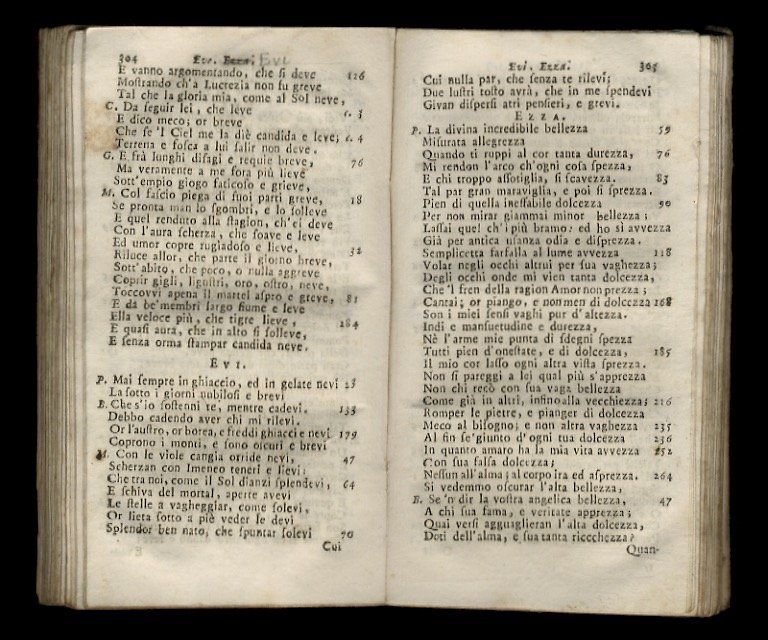 304 Eve. Ezza. Evi
E vanno argomentando, che ſi deve 126
Moſtrando ch'a Lucrezia non fu greve
Tal che la gloria mia, come al Sol neve,
C. Da ſeguir lei, che leve c. 3
E dico meco; or breve
Che ſe 'l Ciel me la diè candida e leve; c. 4
Terrena e foſca a lui ſalir non deve.
G. E frà lunghi diſagi e requie breve, 76
Ma veramente a me fora più lieve
Sott'empio giogo faticoſo e grieve,
M. Col faſcio piega di ſuoi parti greve, 18
Se pronta man lo ſgombri, e lo ſolleve
E quel renduto alla ſtagion, ch'ei deve
Con l'aura ſcherza, che ſoave e leve
Ed umor copre rugiadoſo e lieve, 32
Riluce allor, che parte il giorno breve,
Sott'abito, che poco, o nulla aggreve
Coprir gigli, liguſtri, oro, oſtro, neve,
Toccovvi apena il martel aſpro e greve, 81
E da be'membri largo fiume e leve
Ella veloce più, che tigre lieve, 184
E quaſi aura, che in alto ſi ſolleve,
E ſenza orma ſtampar candida neve.
E v i.
P. Mai ſempre in ghiaccio, ed in gelate nevi 23
La ſotto i giorni nubiloſi e brevi
B. Che s'io ſoſtenni te, mentre cadevi. 133
Debbo cadendo aver chi mi rilevi.
Or l'auſtro, or borea, e freddi ghiacci e nevi 179
Coprono i monti, e ſono oſcuri e brevi
M. Con le viole cangia orride nevi, 47
Scherzan con Imeneo teneri e lievi:
Che tra noi, come il Sol dianzi ſplendevi, 64
E ſchiva del mortal, aperte avevi
Le ſtelle a vagheggiar, come ſolevi,
Or lieta ſotto a piè veder le devi
Splendor ben nato, che ſpuntar ſolevi 70
Cui
Evi. Ezza. 305
Cui nulla par, che ſenza te rilevi;
Due luſtri toſto avrà, che in me ſpendevi
Givan diſperſi atri penſieri, e grevi.
E z z a.
P. La divina incredibile bellezza 59
Miſurata allegrezza
Quando ti ruppi al cor tanta durezza, 76
Mi rendon l'arco ch'ogni coſa ſpezza,
E chi troppo aſſotiglia, ſi ſcavezza. 83
Tal par gran maraviglia, e poi ſi ſprezza.
Pien di quella ineffabile dolcezza 90
Per non mirar giammai minor bellezza;
Laſſai quel ch'i più bramo: ed ho sì avvezza
Già per antica uſanza odia e diſprezza.
Semplicetta farfalla al lume avvezza 118
Volar negli occhi altrui per ſua vaghezza;
Degli occhi onde mi vien tanta dolcezza,
Che 'l fren della ragion Amor non prezza;
Cantai; or piango, e non men di dolcezza 168
Son i miei ſenſi vaghi pur d'altezza.
Indi e manſuetudine e durezza,
Nè l'arme mie punta di ſdegni ſpezza
Tutti pien d'oneſtate, e di dolcezza, 185
Il mio cor laſſo ogni altra viſta ſprezza.
Non ſi pareggi a lei qual più s'apprezza
Non chi recò con ſua vaga bellezza
Come già in altri, infino alla vecchiezza; 216
Romper le pietre, e pianger di dolcezza
Meco al biſogno; e non altra vaghezza 235
Al fin ſe'giunto d'ogni tua dolcezza 236
In quanto amaro ha la mia vita avvezza 252
Con ſua falſa dolcezza;
Neſſun all'alma; al corpo ira ed aſprezza. 264
Si vedemmo oſcurar l'alta bellezza,
B. Se 'n dir la voſtra angelica bellezza, 47
A chi ſua fama, e veritate apprezza;
Quai verſi agguaglieran l'alta dolcezza,
Doti dell'alma, e ſua tanta ricchezza?
Quan-